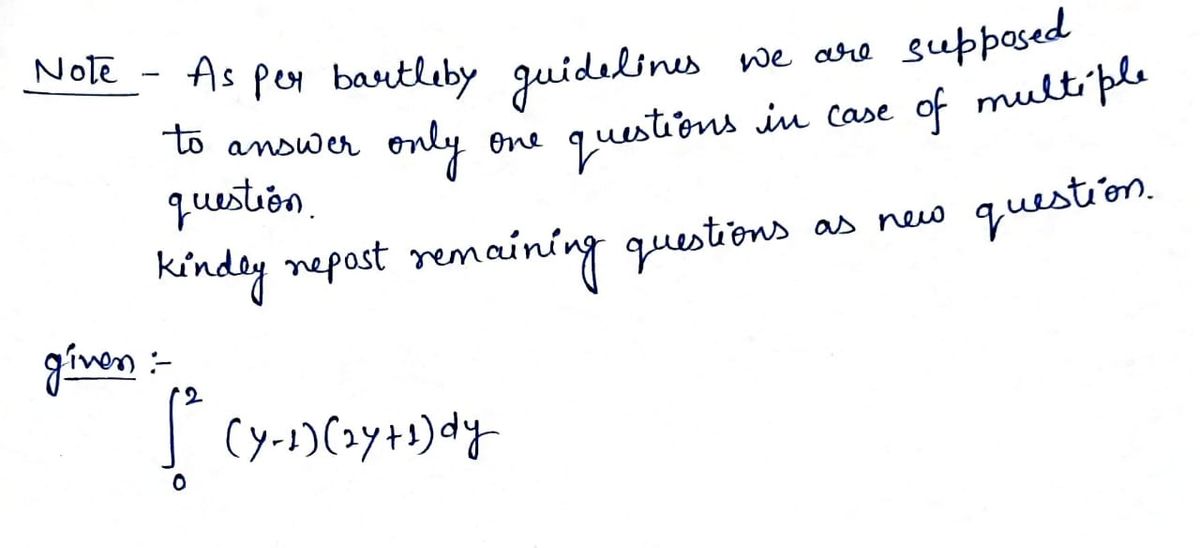 Note - As per bartleby guidelines we are supposed
to answer only one questions in case of multiple
question.
kindly repost remaining questions as new question.
given :-
∫₀² (y-1)(2y+1)dy